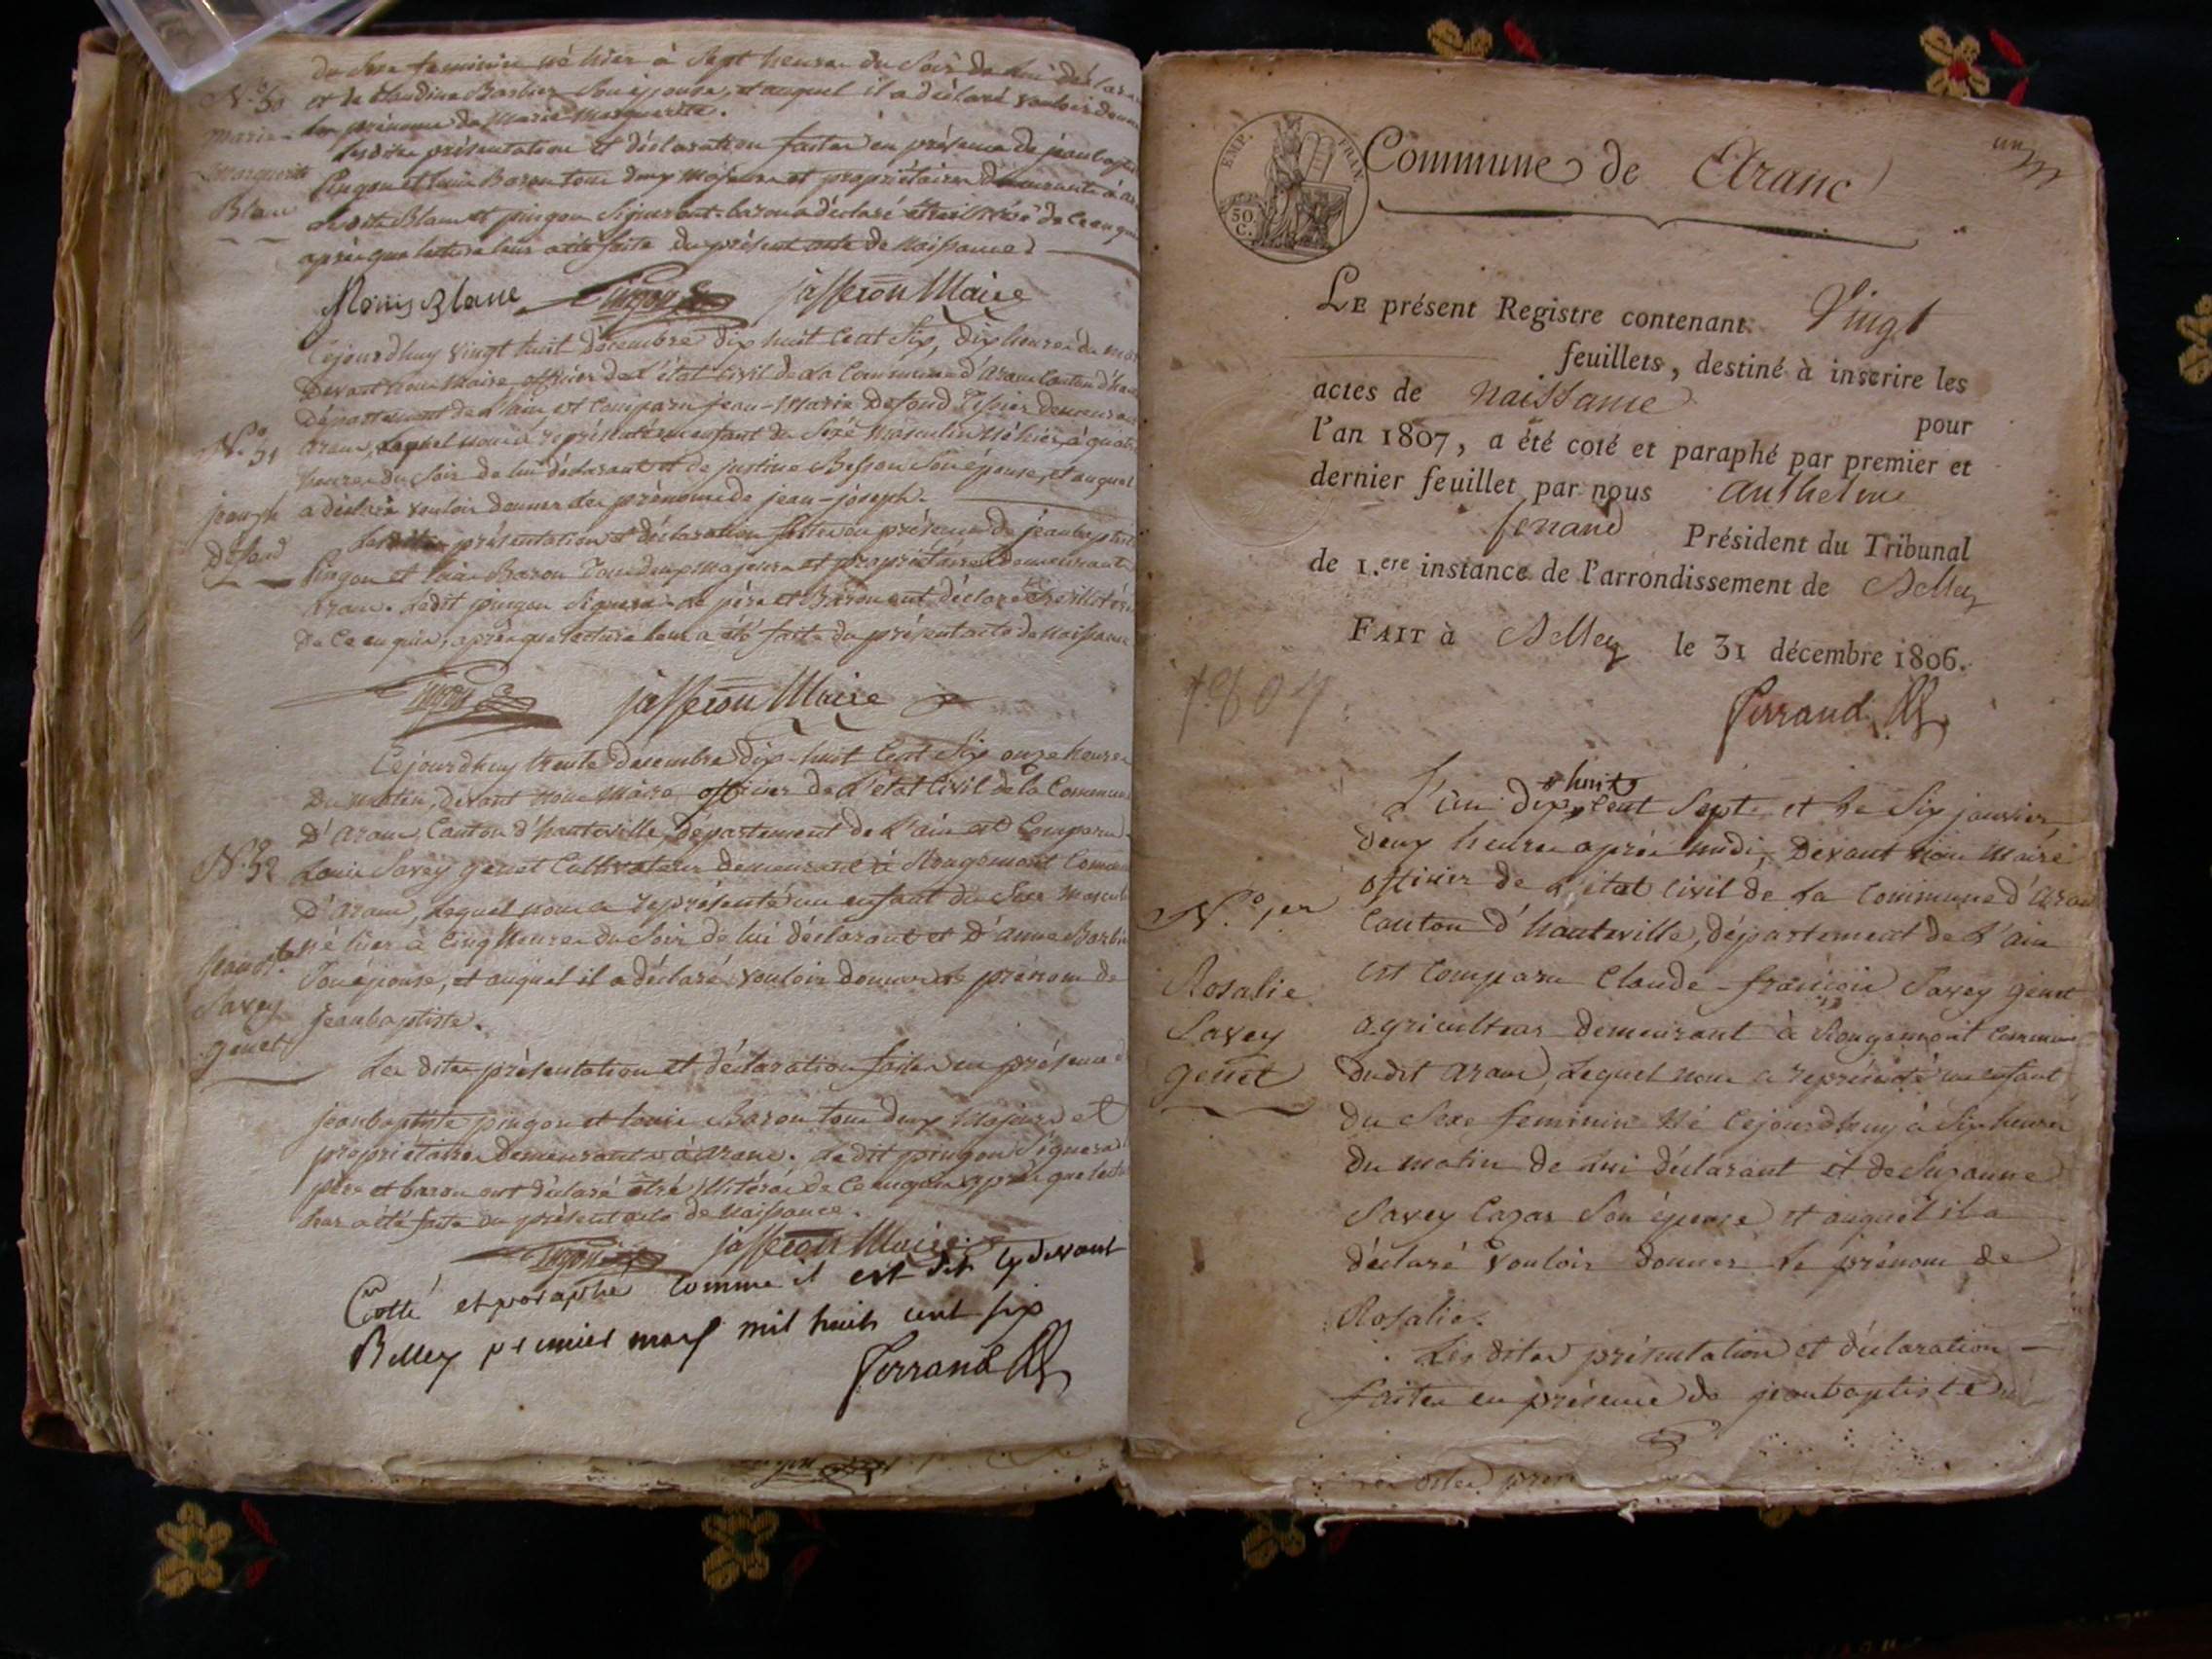 du Sexe feminin né hier à Sept heures du Soir de lui déclarant
N.º 50 et de Claudine Barbier Son épouse, et auquel il a déclaré vouloir donner
les prénoms de Marie Marguerite.
Marie Marguerite Blanc
Lesdites présentation et déclaration faites en présence de jeanbaptiste
pingon et louis Baron tous deux Majeurs et propriétaires demeurants à
Ledit Blanc et pingon Signeront baron a déclaré être illitéré de ce enquis
après que lecture leur a été faite du présent acte de Naissance
Louis Blanc Pingon jasseron Maire
Cejourdhuy vingt huit décembre dix huit Cent Six, dix heures du matin
Devant nous Maire officier de l'état Civil de la Commune d'Aranc Canton d'h
Département de l'ain est Comparu jean-Marie Defond demeurant
N.º 51 Aranc, Lequel nous a représenté un enfant du Sexe Masculin Né hier, à quatre
heures du Soir de lui déclarant et de justine Besson Son épouse, et auquel
a déclaré vouloir donner les prénoms de jean-joseph.
jean jh Defond
Lesdites présentation et déclaration faites en présence de jeanbaptiste
Pingon et louis Baron Tous deux majeurs et propriétaires demeurants
Aranc. Ledit pingon Signera le père et Baron ont déclaré être illitérés
de Ce enquis, après que lecture leur a été faite du présent acte de Naissance
Pingon jasseron Maire
Cejourdhuy trente décembre dix-huit Cent Six onze heures
du matin, devant nous Maire officier de l'état Civil de la Commune
D'Aranc Canton d'hauteville, département de l'ain est Comparu
N.º 52 Louis Savey genet Cultivateur demeurant à Rougemont Commune
D'Aranc, Lequel nous a représenté un enfant du Sexe Masculin
Né hier à Cinq heures du Soir de lui déclarant et D'anne Barbier
Son épouse, et auquel il a déclaré vouloir donner le prénom de
jeanbaptiste.
jean bte Savey genet
Les dites présentation et déclaration faites en présence de
jeanbaptiste pingon et louis Baron tous deux Majeurs et
propriétaires demeurants à Aranc. Ledit pingon Signera le
père et baron ont déclaré être illitérés de Ce enquis après que lecture
leur a été faite du présent acte de Naissance.
Pingon jasseron Maire
Cotté et paraphé comme il est dit cy devant
Belley premier mars mil huit cent six
Ferrand
un
EMP. FRAN.
50. C.
Commune de Aranc
LE présent Registre contenant Vingt
feuillets, destiné à inscrire les
actes de Naissance pour
l'an 1807, a été coté et paraphé par premier et
dernier feuillet par nous Anthelme
ferrand Président du Tribunal
de 1.ere instance de l'arrondissement de Belley
FAIT à Belley le 31 décembre 1806.
1807
Ferrand
L'an dix huit Cent Sept et le Six janvier
deux heures après midi, Devant nous Maire
officier de l'état Civil de la Commune d'Aranc
N.º 1.er Canton d'hauteville, département de l'ain
est Comparu Claude-françois Savey genet
Rosalie Savey genet
agriculteur demeurant à Rougemont Commune
dudit Aranc, Lequel nous a représenté un enfant
du Sexe feminin Né Cejourdhuy à Six heures
du matin de lui déclarant et de Suzanne
Savey Cazar Son épouse et auquel il a
déclaré vouloir donner le prénom de
Rosalie.
Les dites présentation et déclaration
faites en présence de jeanbaptiste